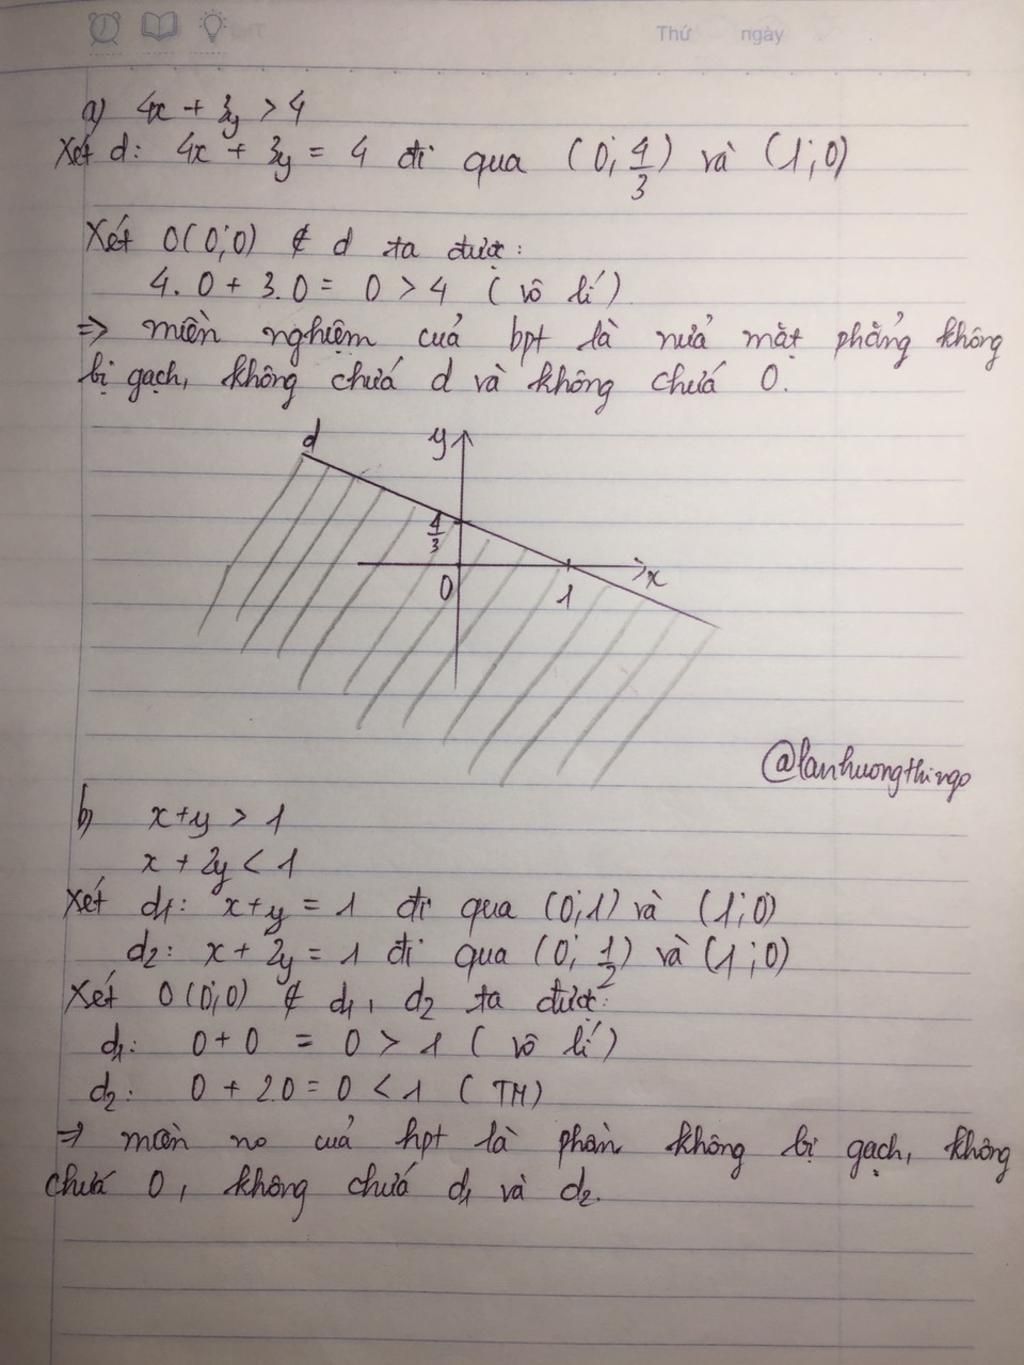 Thứ ngày
a) 4x + 3y > 4
Xét d: 4x + 3y = 4 đi qua (0; 4/3) và (1; 0)
Xét O(0;0) ∉ d ta được:
4.0 + 3.0 = 0 > 4 (vô lí)
=> miền nghiệm của bpt là nửa mặt phẳng không
bị gạch, không chứa d và không chứa O.
d
y
4/3
O 1 x
@lanhuongthingo
b) x+y > 1
x + 2y < 1
Xét d1: x+y = 1 đi qua (0;1) và (1;0)
d2: x + 2y = 1 đi qua (0; 1/2) và (1;0)
Xét O(0;0) ∉ d1, d2 ta được:
d1: 0+0 = 0 > 1 (vô lí)
d2: 0 + 2.0 = 0 < 1 (TM)
=> miền no của hpt là phần không bị gạch, không
chứa O, không chứa d1 và d2.